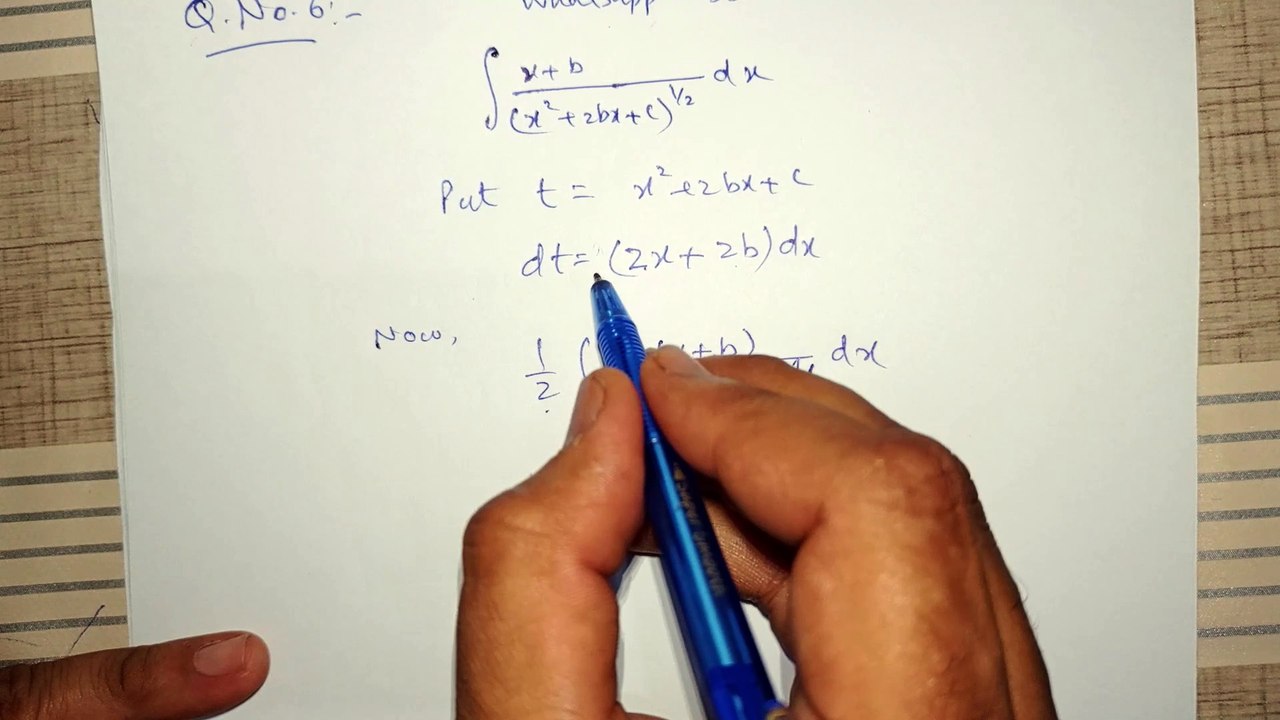 Q.No.6:- Whatsapp
∫ x+b / (x²+2bx+c)^1/2 dx
Put t = x²+2bx+c
dt = (2x+2b)dx
Now, 1/2 x+b) dx